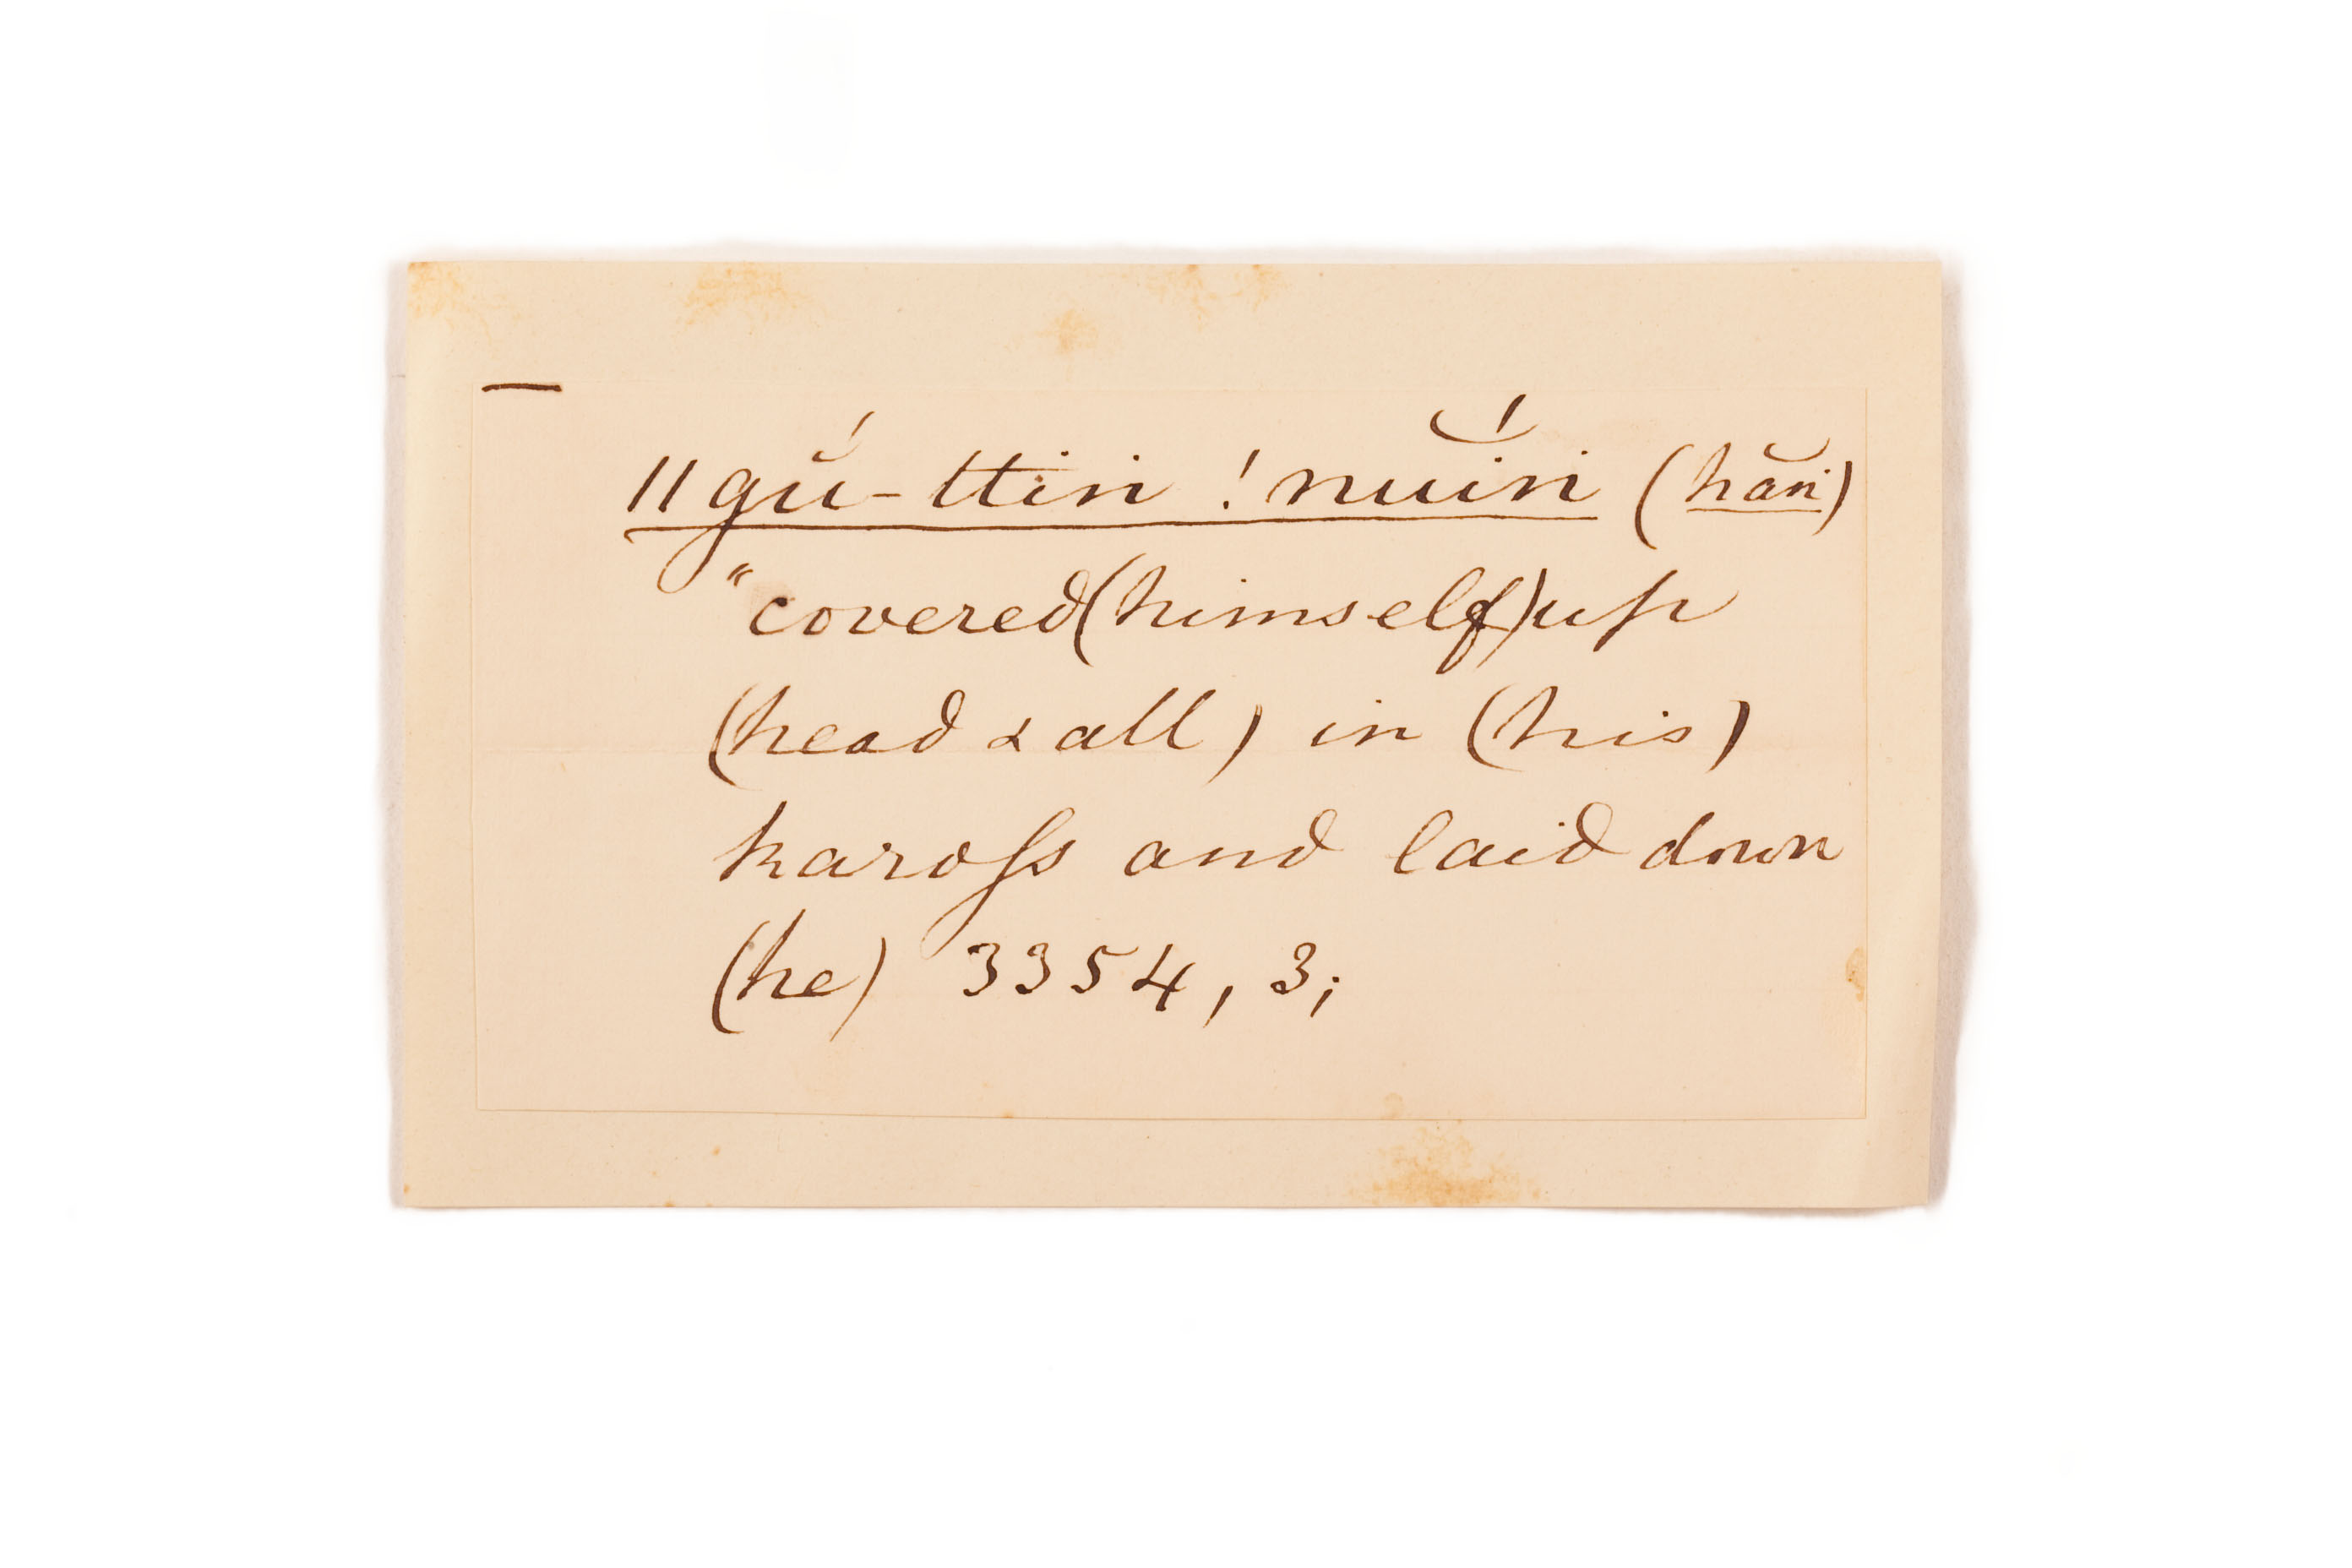 ǁgŭ́-ttin ǃnŭ́in (hăn)
“covered (himself) up
(head & all) in (his)
kaross and laid down
(he) 3354, 3;